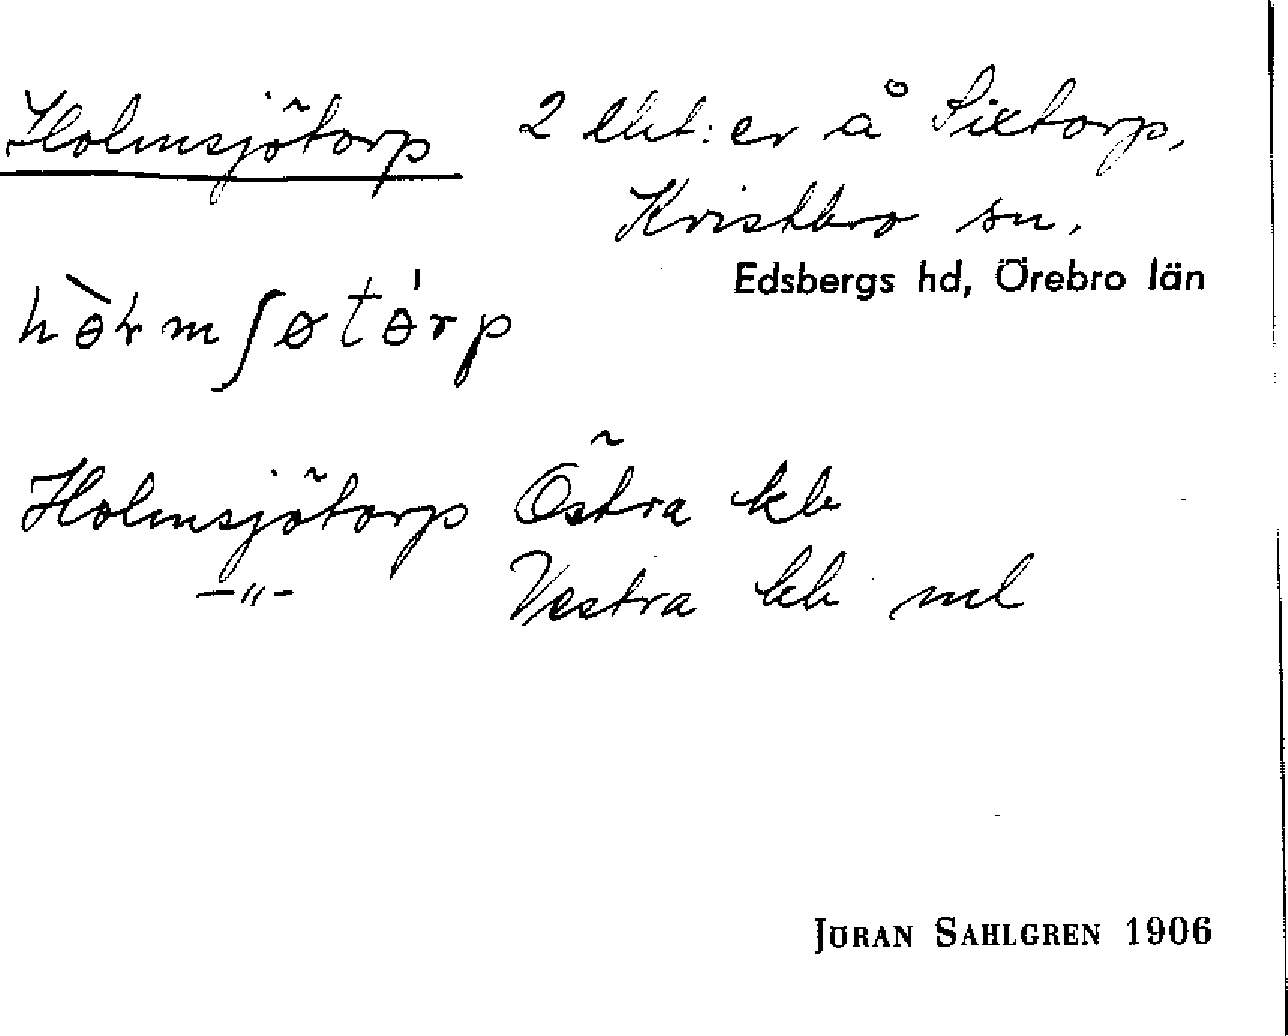 Holmsjötorp 2 lht:er å Sixtorp,
Kvistbro sn.
Edsbergs hd, Örebro län
Holmsjötorp Östra kb
—"— Vestra kb ml
JÖRAN SAHLGREN 1906